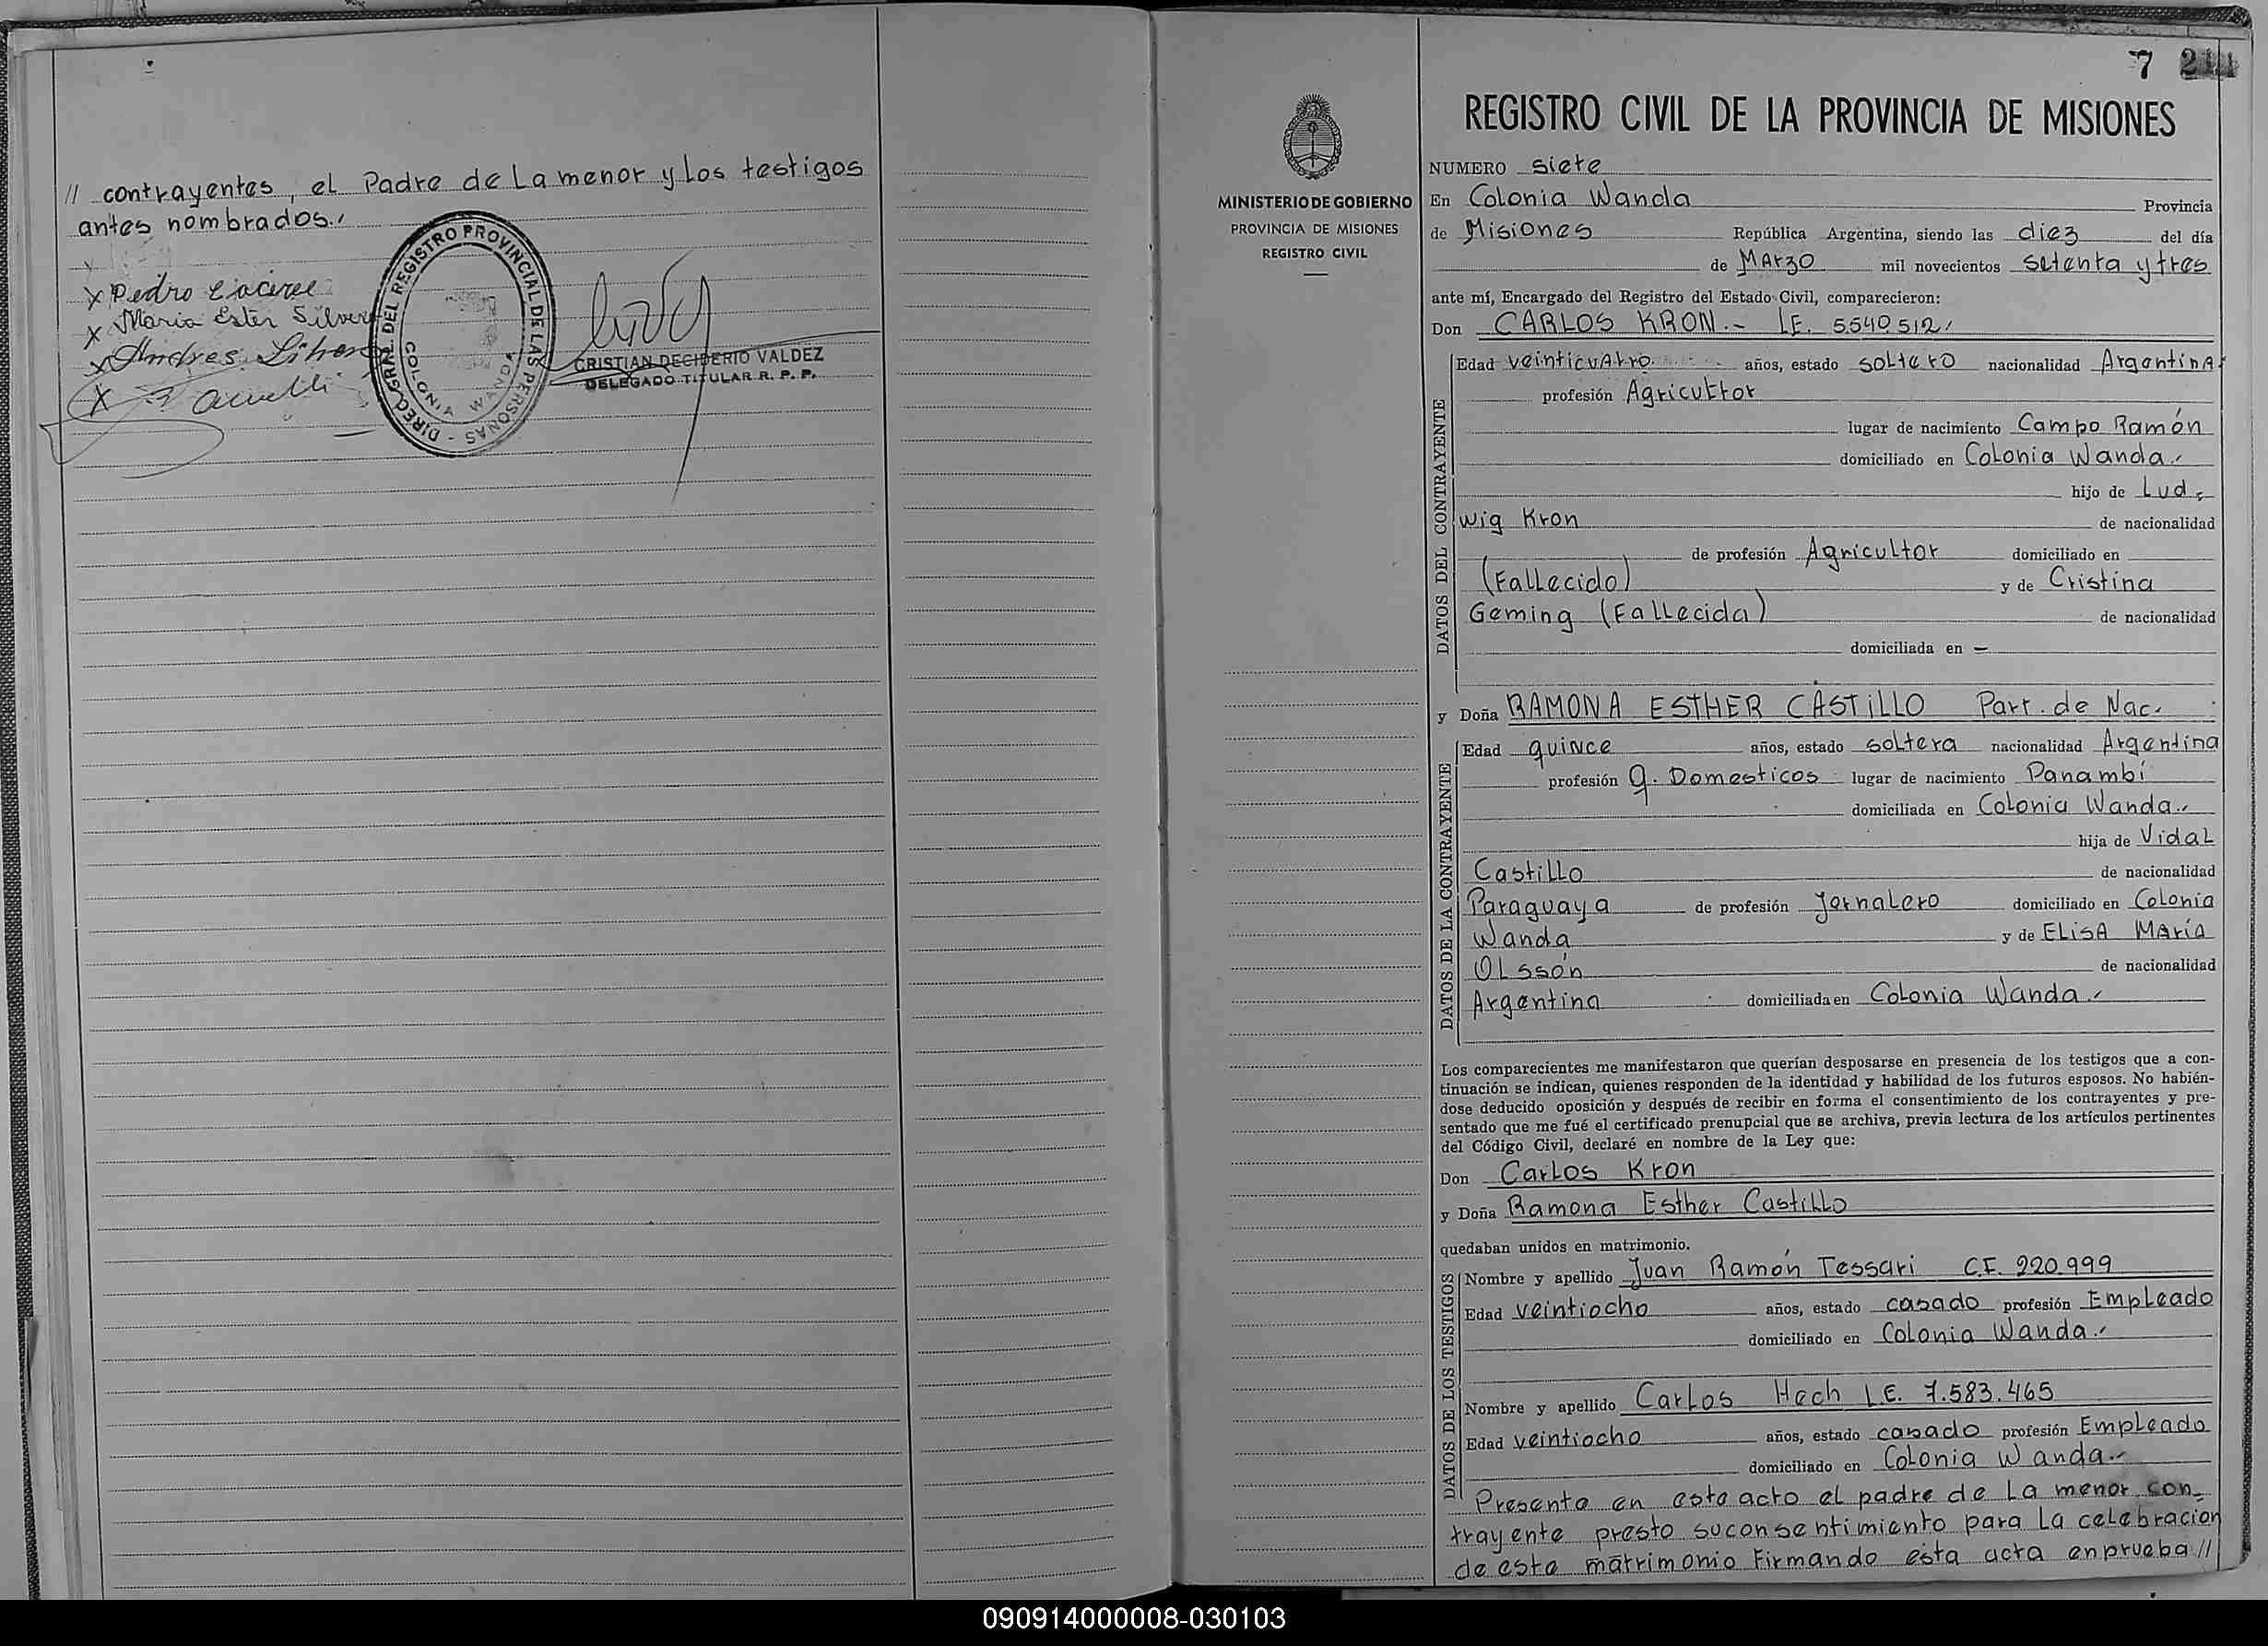 // contrayentes, el Padre de La menor y Los testigos
antes nombrados.,
x Pedro
x Maria Ester
x Andres
x
DIREC. GRAL. DEL REGISTRO PROVINCIAL DE LAS PERSONAS -
COLONIA WANDA
CRISTIAN DECIDERIO VALDEZ
DELEGADO TITULAR R. P. P.
MINISTERIO DE GOBIERNO
PROVINCIA DE MISIONES
REGISTRO CIVIL
7
REGISTRO CIVIL DE LA PROVINCIA DE MISIONES
NUMERO siete
En Colonia Wanda Provincia
de Misiones República Argentina, siendo las diez del día
de Marzo mil novecientos setenta y tres
ante mí, Encargado del Registro del Estado Civil, comparecieron:
Don CARLOS KRON.- L.E. 5540512,
DATOS DEL CONTRAYENTE
Edad veinticuatro años, estado soltero nacionalidad Argentina
profesión Agricultor
lugar de nacimiento Campo Ramón
domiciliado en Colonia Wanda.,
hijo de Lud-
wig Kron de nacionalidad
de profesión Agricultor domiciliado en
(Fallecido) y de Cristina
Geming (Fallecida) de nacionalidad
domiciliada en —
y Doña RAMONA ESTHER CASTILLO Part. de Nac.
DATOS DE LA CONTRAYENTE
Edad quince años, estado soltera nacionalidad Argentina
profesión q. Domesticos lugar de nacimiento Panambí
domiciliada en Colonia Wanda.,
hija de Vidal
Castillo de nacionalidad
Paraguaya de profesión Jornalero domiciliado en Colonia
Wanda y de Elisa María
Olssón de nacionalidad
Argentina domiciliada en Colonia Wanda.,
Los comparecientes me manifestaron que querían desposarse en presencia de los testigos que a con-
tinuación se indican, quienes responden de la identidad y habilidad de los futuros esposos. No habién-
dose deducido oposición y después de recibir en forma el consentimiento de los contrayentes y pre-
sentado que me fué el certificado prenupcial que se archiva, previa lectura de los artículos pertinentes
del Código Civil, declaré en nombre de la Ley que:
Don Carlos Kron
y Doña Ramona Esther Castillo
quedaban unidos en matrimonio.
DATOS DE LOS TESTIGOS
Nombre y apellido Juan Ramón Tessari C.I. 220.999
Edad veintiocho años, estado casado profesión Empleado
domiciliado en Colonia Wanda.,
Nombre y apellido Carlos Hech L.E. 7.583.465
Edad veintiocho años, estado casado profesión Empleado
domiciliado en Colonia Wanda.,
Presente en este acto el padre de La menor con-
trayente presto su consentimiento para La celebracion
de este matrimonio Firmando esta acta en prueba //
090914000008-030103